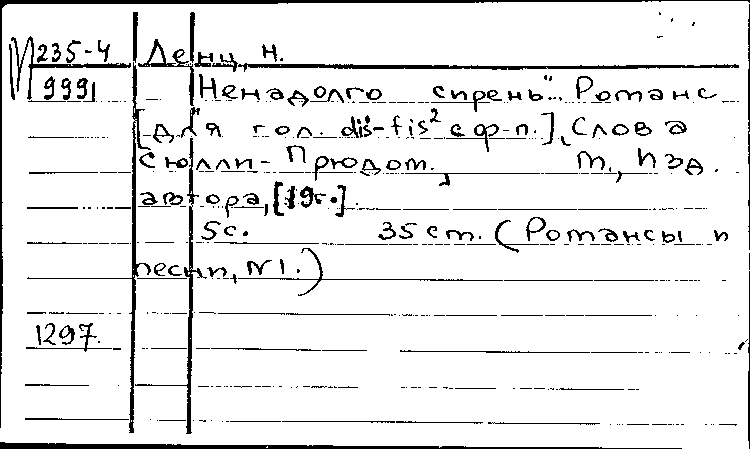 М 235-4 Ленц, Н.
9991 „Ненадолго сирень“... Романс
[для гол. dis¹-fis² с ф-п.], Слова
Сюлли-Прюдом., М., Изд.
автора, [19г.].
5с. 35 ст. (Романсы и
песни, №1.)
1297.